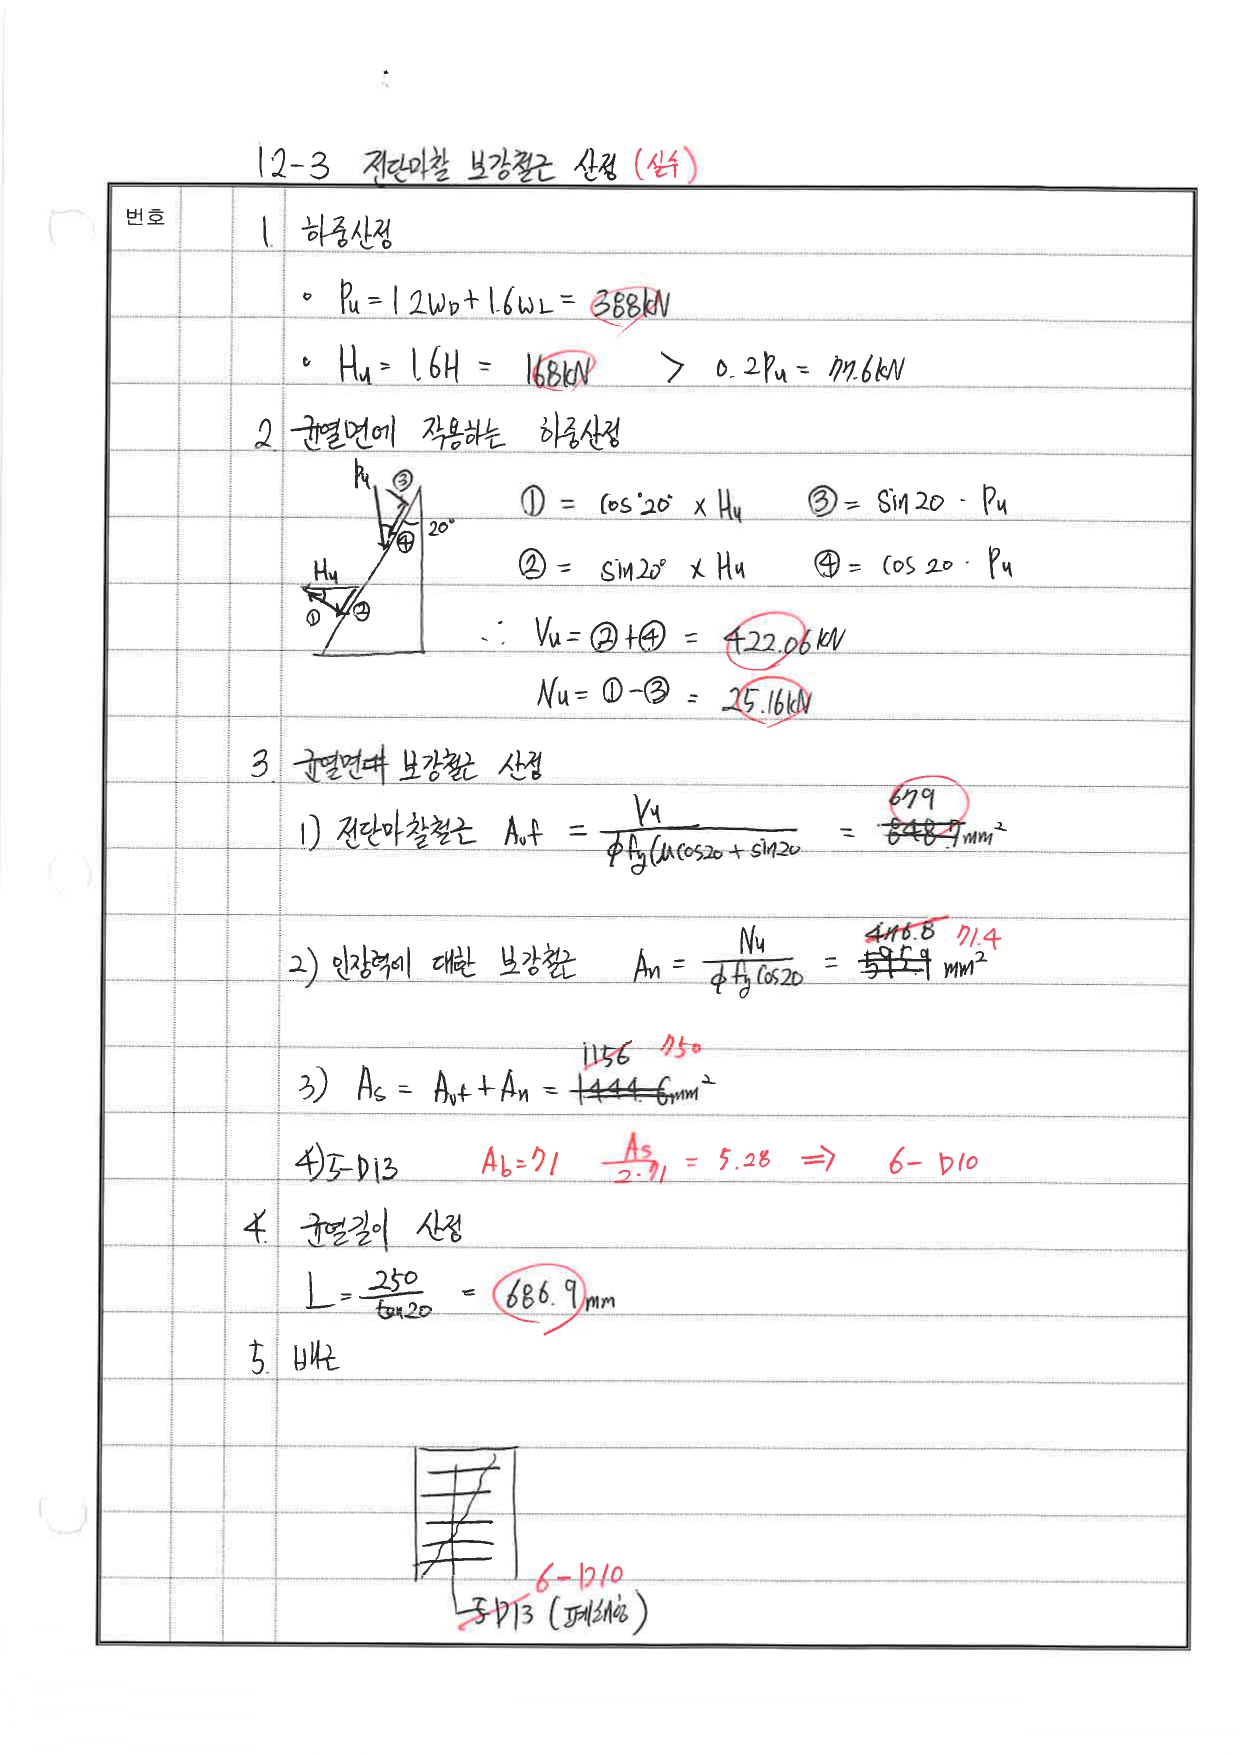 12-3 전단마찰 보강철근 산정 (실수)
번호
1. 하중산정
• Pu = 1.2WD + 1.6WL = 388kN
• Hu = 1.6H = 168kN > 0.2Pu = 77.6kN
2 균열면에 작용하는 하중산정
Pu ③ 20° ④ Hu ① ②
① = cos°20° × Hu ③ = sin20 · Pu
② = sin20° × Hu ④ = cos20 · Pu
∴ Vu = ②+④ = 422.06kN
Nu = ①-③ = 25.16kN
3. 균열면 보강철근 산정
1) 전단마찰철근 Avf = Vu / φfy(μcos20 + sin20 = 848.7 679 mm²
2) 인장력에 대한 보강철근 An = Nu / φfycos20 = 595.9 476.8 71.4 mm²
3) As = Avf + An = 1444.6 1156 750 mm²
4) 5-D13 Ab=71 As / 2·71 = 5.28 ⇒ 6-D10
4. 균열길이 산정
L = 250 / tan20 = 686.9mm
5. 배근
6-D10
5-D13 (폐쇄형)